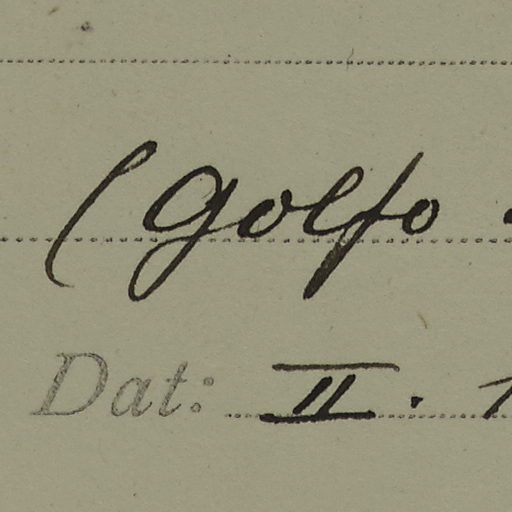 (Golfo
Dat: II.